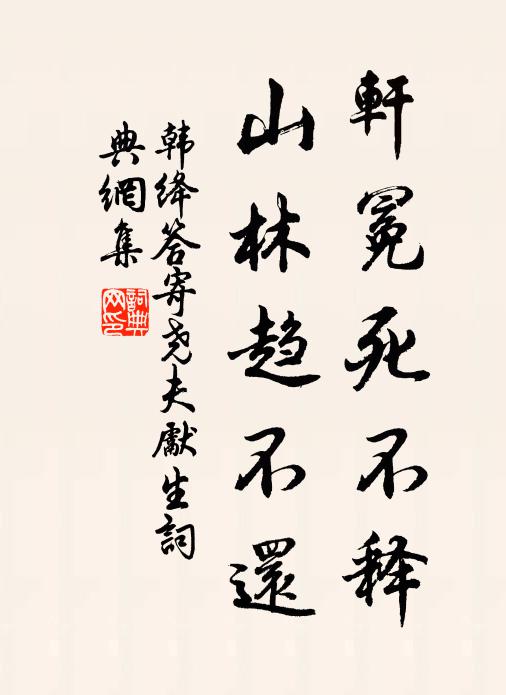 軒冕死不释
山林趋不還
韩绛答寄尧夫獻生詞
典網集
詞典网印